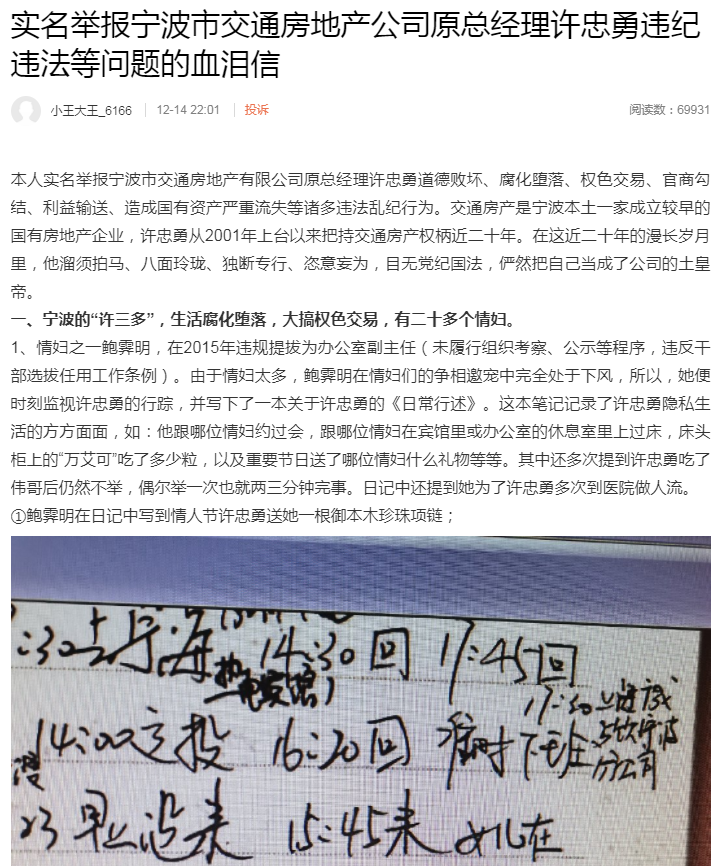 实名举报宁波市交通房地产公司原总经理许忠勇违纪
违法等问题的血泪信
小王大王_6166 12-14 22:01 投诉 阅读数：69931
本人实名举报宁波市交通房地产有限公司原总经理许忠勇道德败坏、腐化堕落、权色交易、官商勾
结、利益输送、造成国有资产严重流失等诸多违法乱纪行为。交通房产是宁波本土一家成立较早的
国有房地产企业，许忠勇从2001年上台以来把持交通房产权柄近二十年。在这近二十年的漫长岁月
里，他溜须拍马、八面玲珑、独断专行、恣意妄为，目无党纪国法，俨然把自己当成了公司的土皇
帝。
一、宁波的“许三多”，生活腐化堕落，大搞权色交易，有二十多个情妇。
1、情妇之一鲍霁明，在2015年违规提拔为办公室副主任（未履行组织考察、公示等程序，违反干
部选拔任用工作条例）。由于情妇太多，鲍霁明在情妇们的争相邀宠中完全处于下风，所以，她便
时刻监视许忠勇的行踪，并写下了一本关于许忠勇的《日常行述》。这本笔记记录了许忠勇隐私生
活的方方面面，如：他跟哪位情妇约过会，跟哪位情妇在宾馆里或办公室的休息室里上过床，床头
柜上的“万艾可”吃了多少粒，以及重要节日送了哪位情妇什么礼物等等。其中还多次提到许忠勇吃了
伟哥后仍然不举，偶尔举一次也就两三分钟完事。日记中还提到她为了许忠勇多次到医院做人流。
①鲍霁明在日记中写到情人节许忠勇送她一根御本木珍珠项链；
:30去宁海 14:30回 17:45回
17:30
14:00交投 16:20回 准时下班
分公司
23 早上没来 15:45来